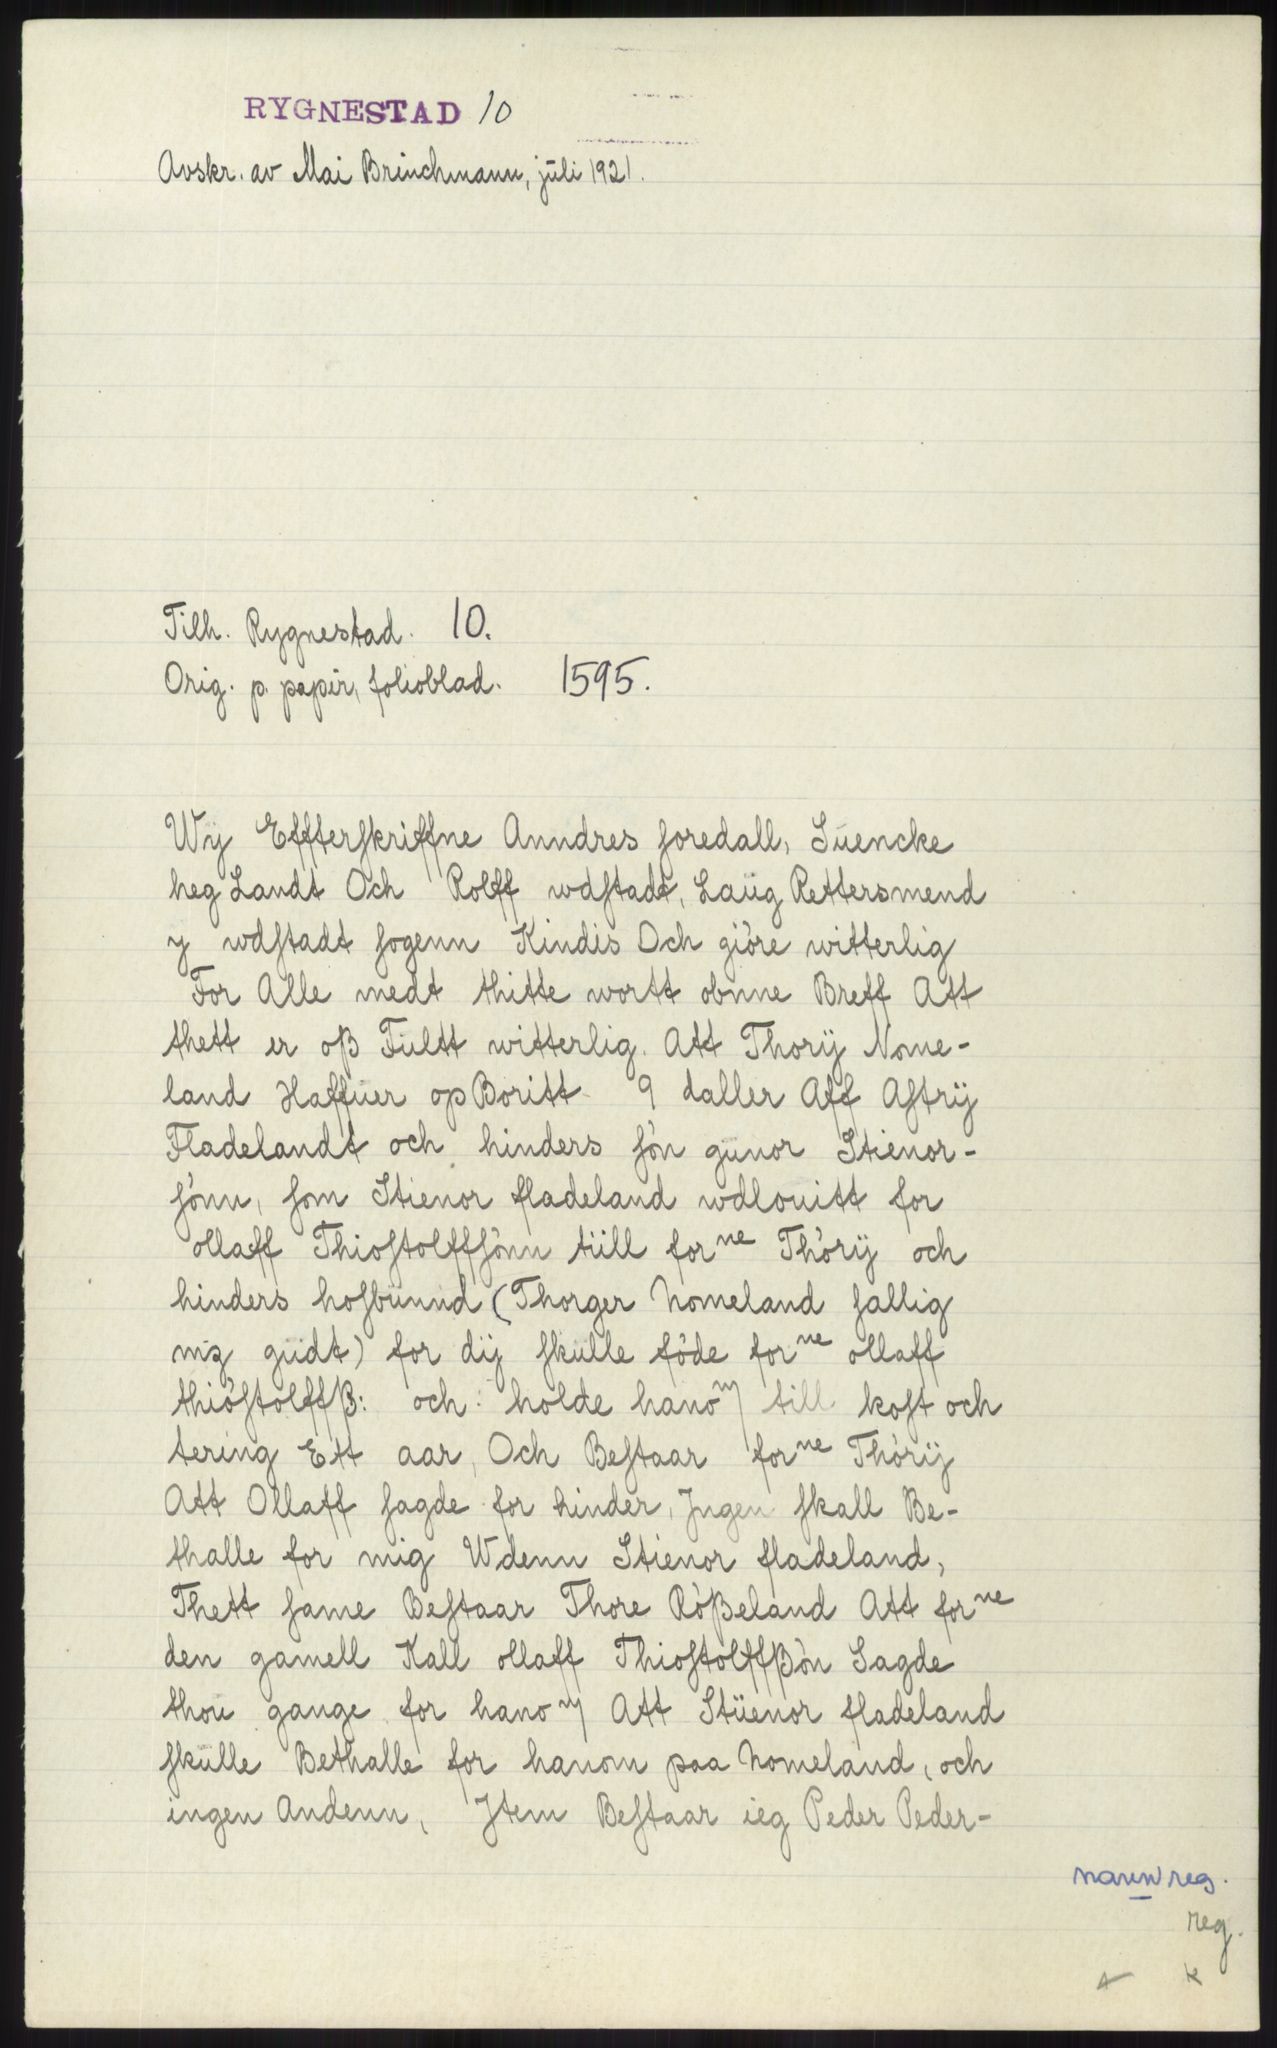 RYGNESTAD 10
Avskr. av Mai Brinchmann, juli 1921.
Tilh. Rygnestad. 10.
Orig. p. papir, folioblad. 1595.
Wÿ Effterſkriffne Anndres foredall, Suencke
heg Landt Och Rolff wdſtadt, Laüg Rettersmend
y wdſtadt ſogenn Kindis Och giöre witterlig
For Alle medt thitte wortt obnne Breff Att
thett er oβ Fultt witterlig. Att Thorÿ Nome-
land Haffuer op Boritt 9 daller Aff Aſtrÿ
Fladelandt och hinders ſön gunor Stienor-
ſönn, ſom Stienor fladeland wdlouitt for
ollaff Thioſtolffſönn tüll forne Thörÿ och
hinders hoſbunnd (Thorger Nomeland ſallig
mz gudt) for dÿ ſkulle föde forne ollaff
thiöſtolffβ: och holde hanom till koſt och
tering Ett aar, Och Beſtaar forne Thörÿ
Att Ollaff ſagde for hinder, Jngen ſkall Be-
thalle for mig Wdenn Stienor fladeland,
Thett ſame Beſtaar Thore Röβeland Att forne
den gamell Kall ollaff Thioſtolffβön Sagde
thou gange for hanom Att Stüenor fladeland
ſkulle Bethalle for hanom paa Nomeland, och
ingen Andenn, Jtem Beſtaar ieg Peder Peder-
navnreg.
reg.